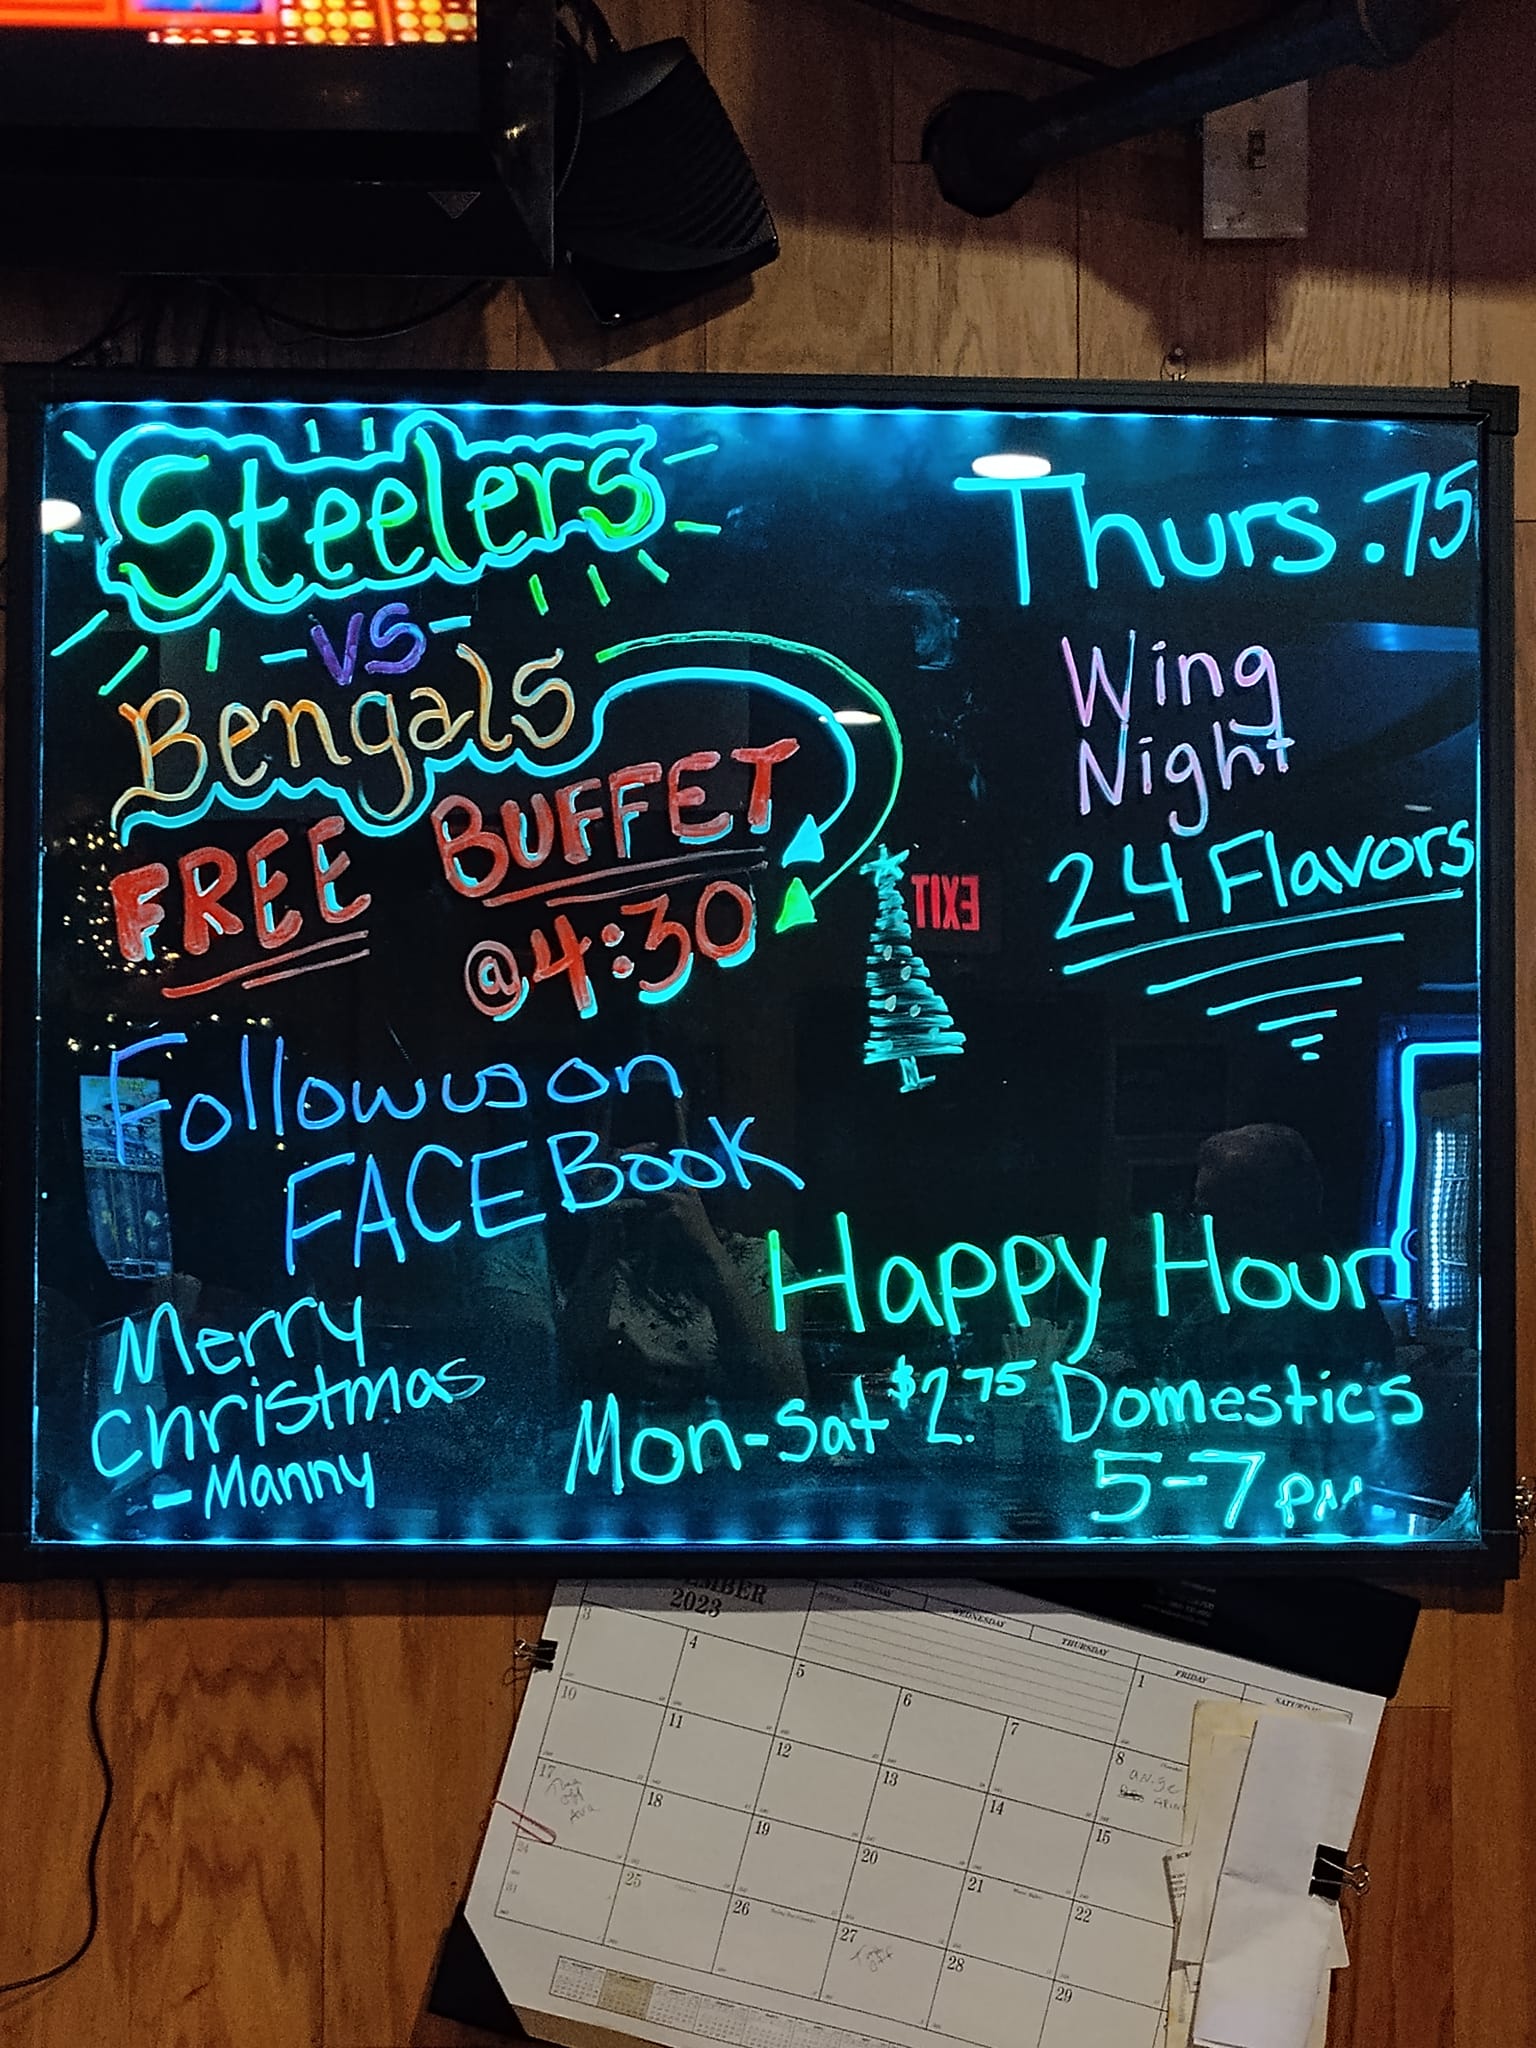 Steelers
-VS-
Bengals
FREE BUFFET
@4:30
Follow us on
FACEBOOK
Merry
Christmas
-Manny
Thurs .75
Wing
Night
24 Flavors
EXIT
Happy Hour
Mon-Sat $2.75 Domestics
5-7 pm
2023
TUESDAY WEDNESDAY THURSDAY FRIDAY
1
3 4 5 6 7 8
10 11 12 13 14 15
17 18 19 20 21 22
24 25 26 27 28 29
31